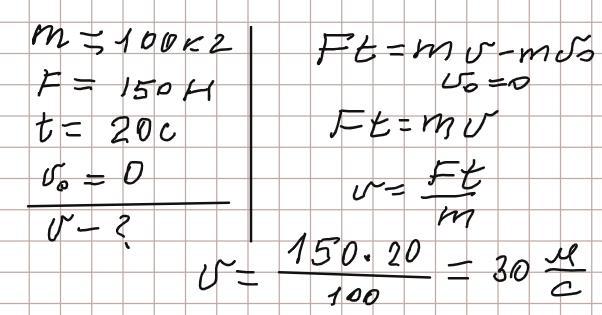 m = 100кг
F = 150 Н
t = 20с
v₀ = 0
v - ?
Ft = mv - mv₀
v₀ = 0
Ft = mv
v = Ft/m
v = 150 · 20/100 = 30 м/с